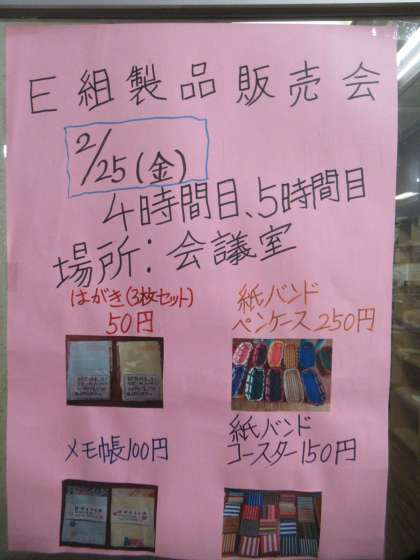 E組製品販売会
2/25(金)
4時間目、5時間目
場所:会議室
はがき(3枚セット)
50円
紙バンド
ペンケース250円
メモ帳100円
紙バンド
コースター150円